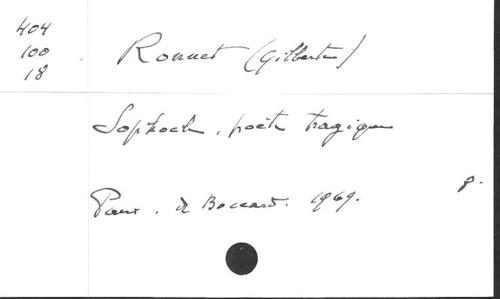 404
100
18
Ronnet (Gilberte)
Sophocle, poète tragique
Paris. de Boccard. 1969.
8.